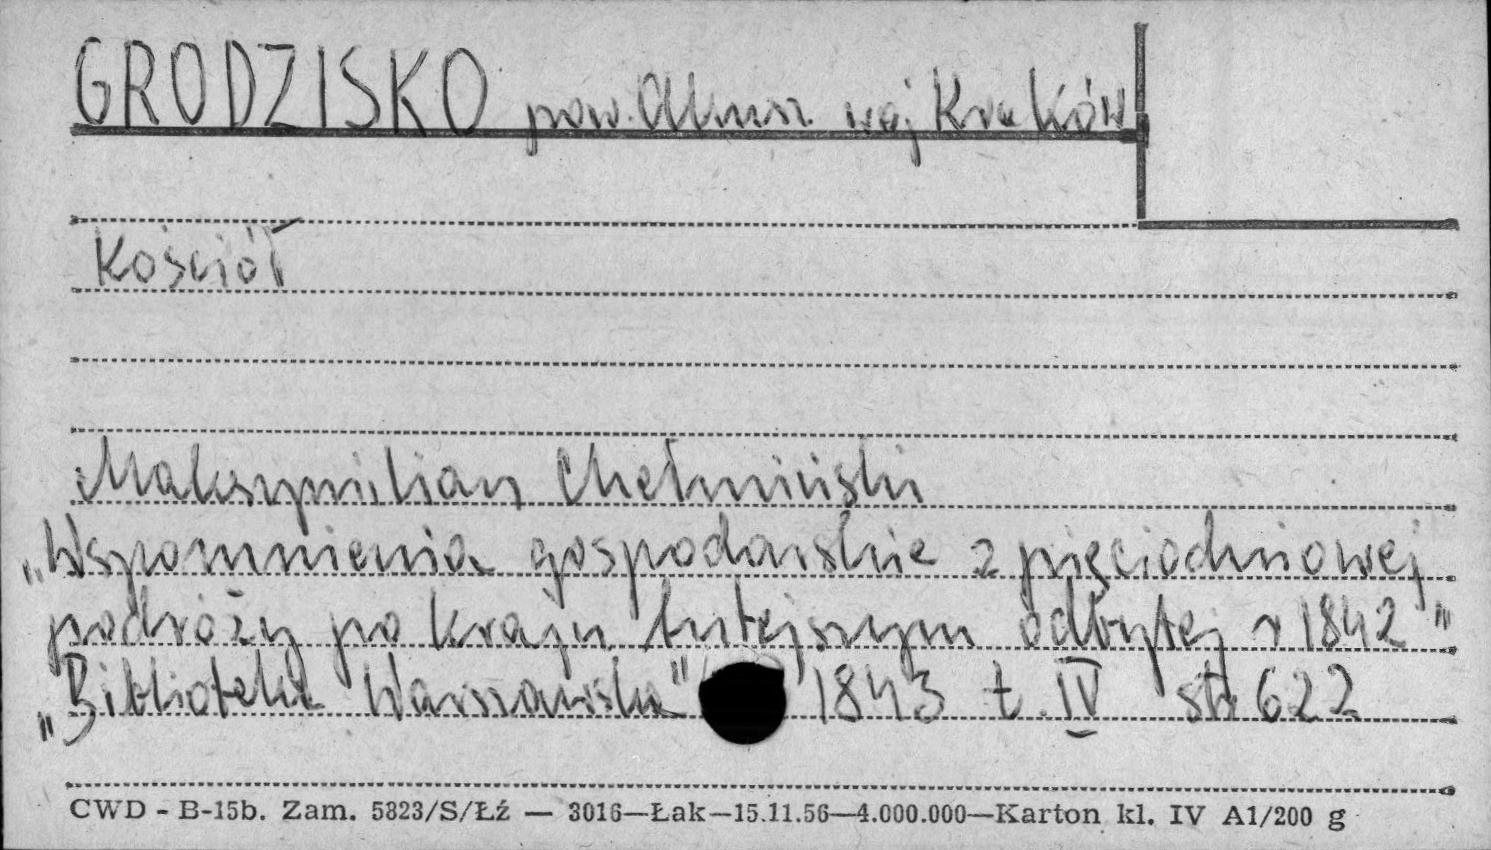 GRODZISKO pow. Olkusz woj Kraków
Kościół
Maksymilian Chełmiński
„Wspomnienia gospodarskie z pięciodniowej
podróży po kraju tutejszym odbytej r 1842"
„Biblioteka Warszawska" 1843 t. IV str 622
CWD - B-15b. Zam. 5823/S/Łź — 3016—Łak—15.11.56—4.000.000—Karton kl. IV A1/200 g